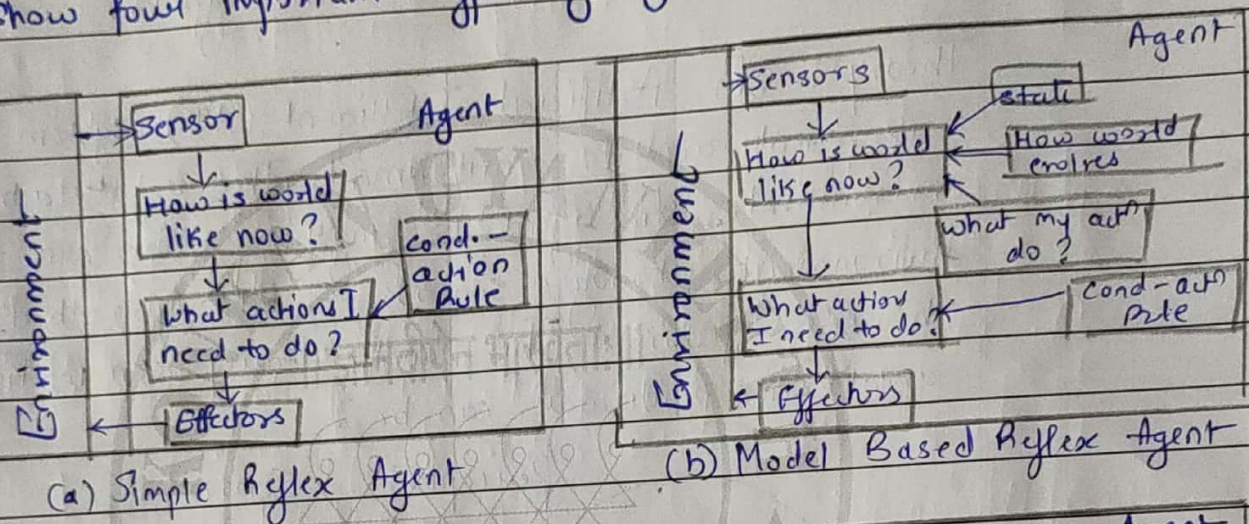 show four
Agent
Sensor
Agent
How is world
like now?
Cond. -
action
Rule
What actions I
need to do?
Effectors
Environment
(a) Simple Reflex Agent
Sensors
state
How is world
like now?
How world
evolves
What my actn
do?
What action
I need to do?
Cond-actn
Rule
Effectors
Environment
(b) Model Based Reflex Agent